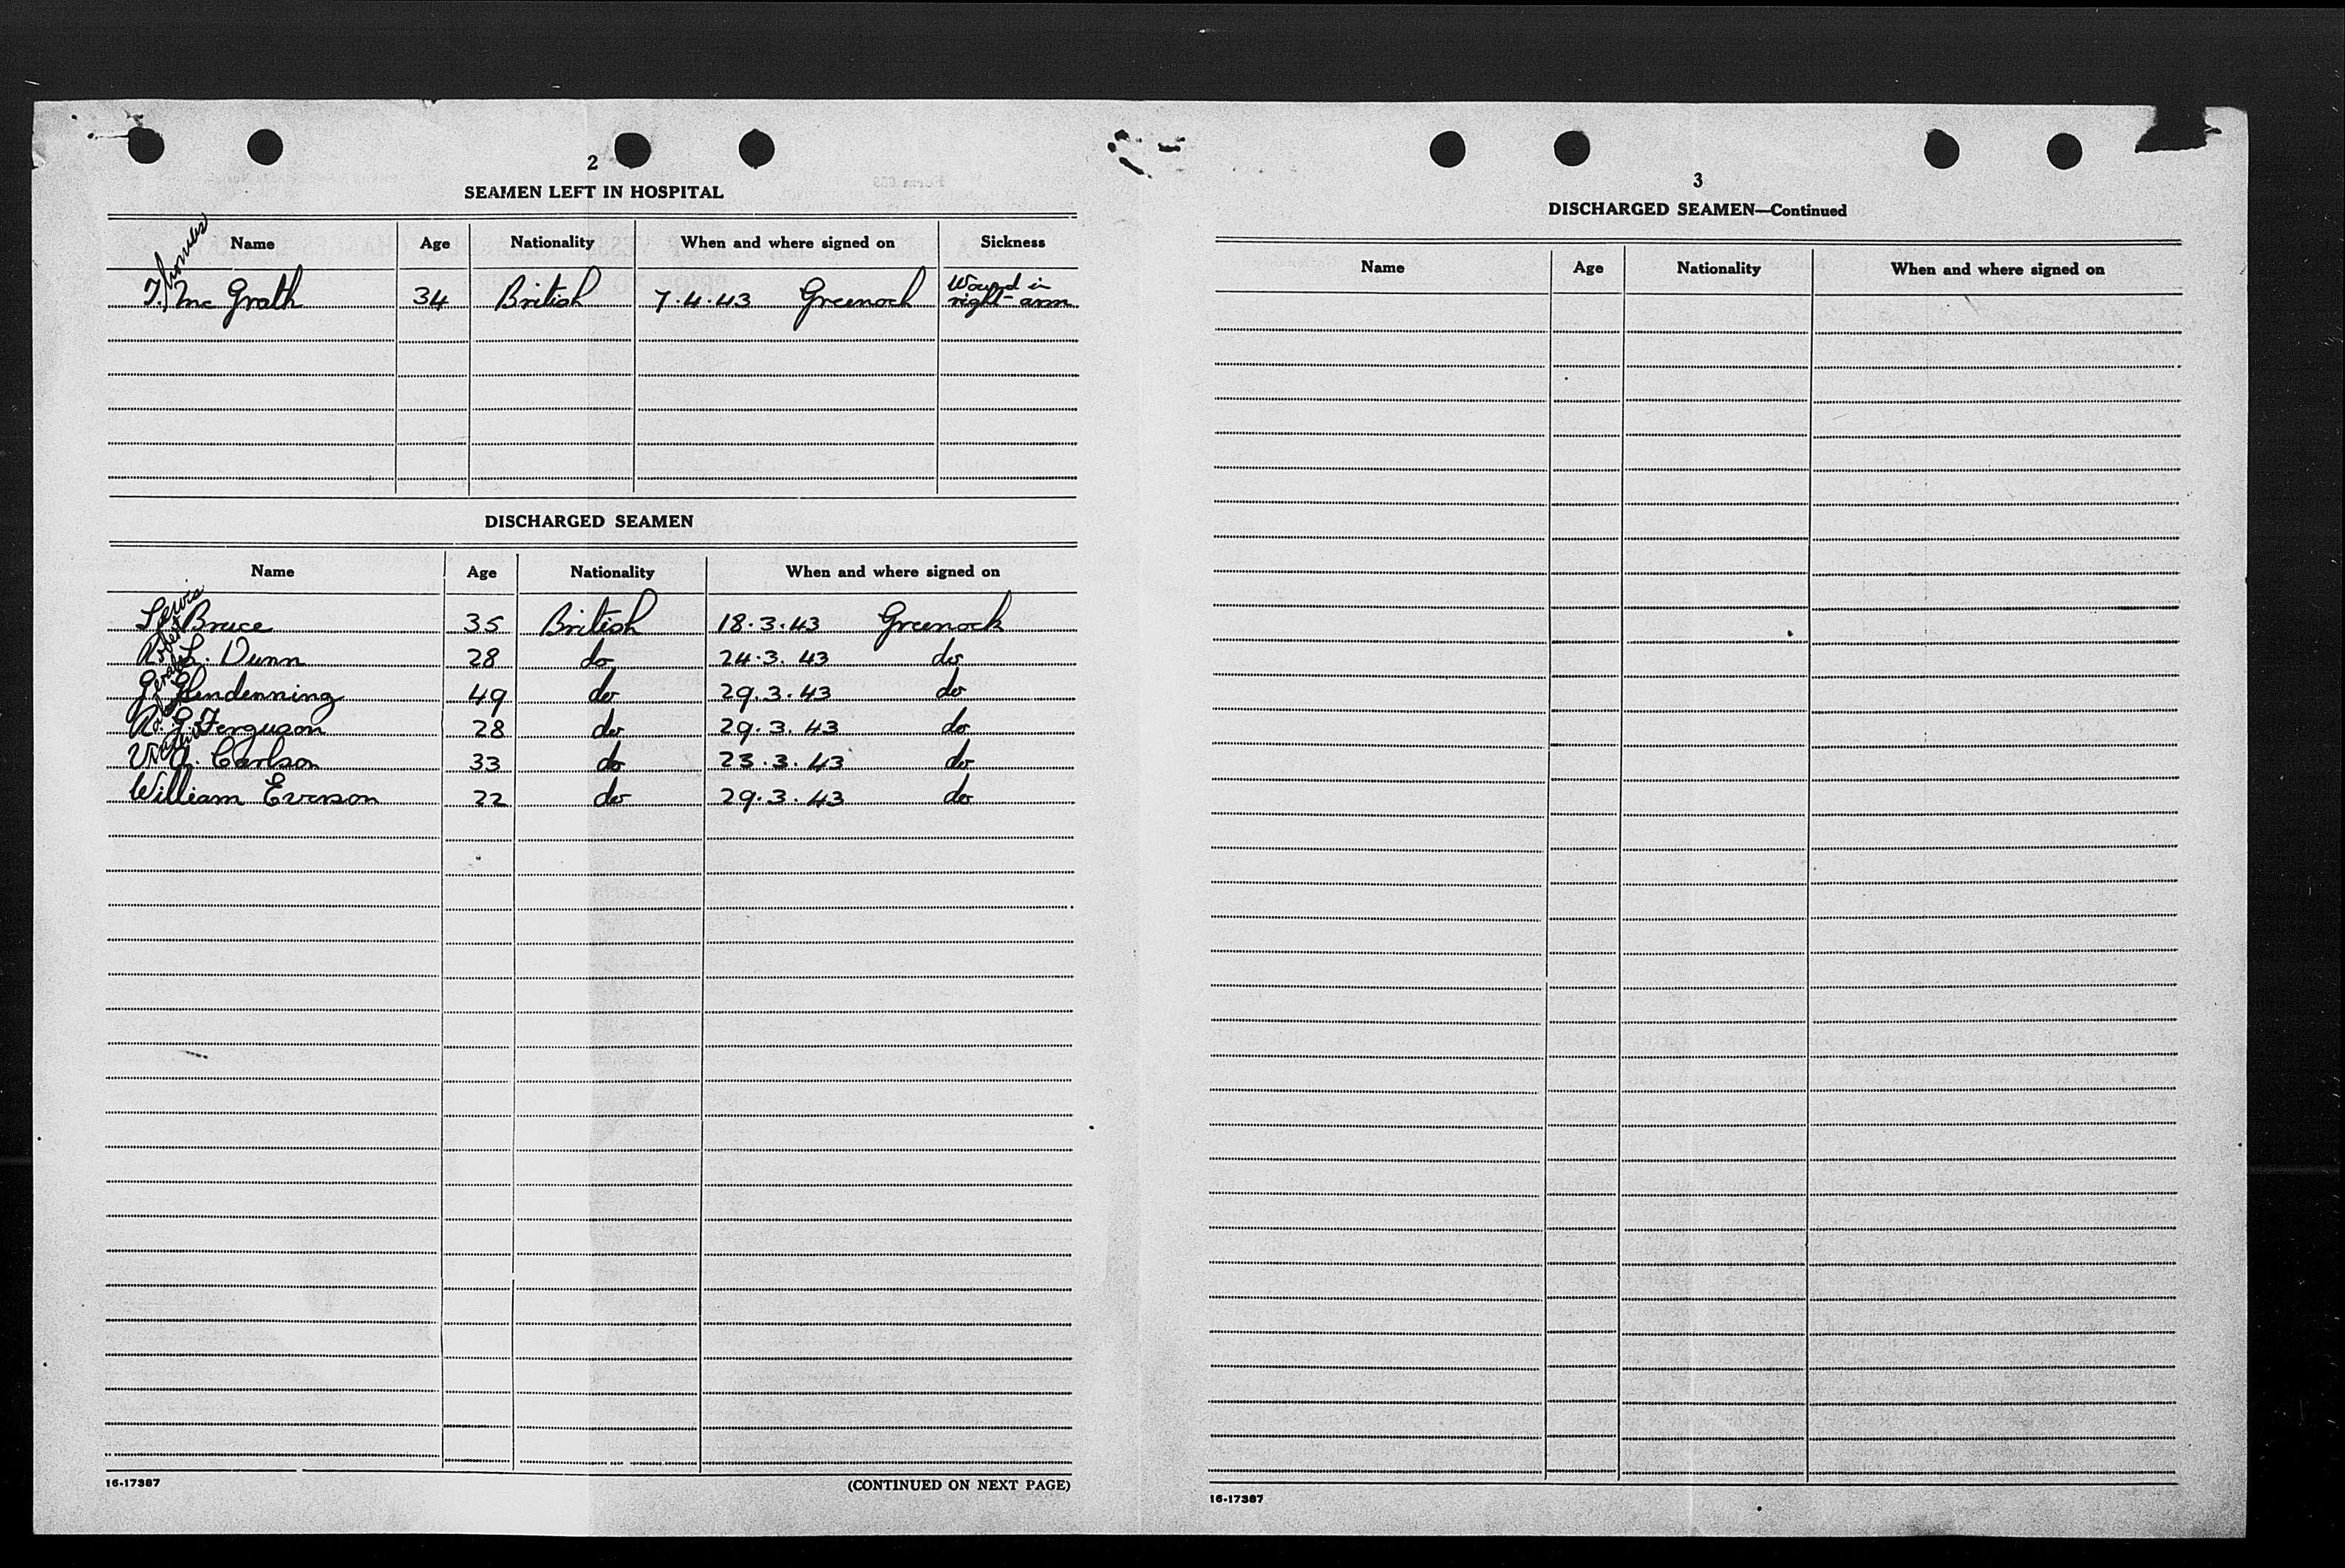 2
SEAMEN LEFT IN HOSPITAL
Name Age Nationality When and where signed on Sickness
Thomas
T. Mc Grath 34 British 7.4.43 Greenock Wound in
right arm
DISCHARGED SEAMEN
Name Age Nationality When and where signed on
Lewis
L. Bruce 35 British 18.3.43 Greenock
Robert
R. L. Dunn 28 do 24.3.43 do
G. Glendenning 49 do 29.3.43 do
R. G. Ferguson 28 do 29.3.43 do
V. A. Carlson 33 do 23.3.43 do
William Everson 22 do 29.3.43 do
16-17387
(CONTINUED ON NEXT PAGE)
3
DISCHARGED SEAMEN—Continued
Name Age Nationality When and where signed on
16-17387